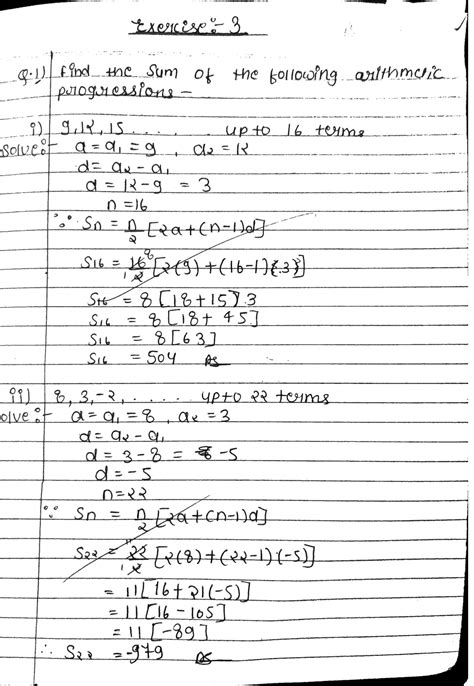 Exercise:- 3
Q.1) Find the sum of the following arithmetic
progressions -
i) 9,12,15 ..... upto 16 terms
Solve:- a = a₁ = 9 , a₂ = 12
d = a₂ - a₁
d = 12-9 = 3
n = 16
∵ Sn = n/2 [2a+(n-1)d]
S16 = 16/2 [2(9)+(16-1){3}]
8
1
S16 = 8[18+15)3
S16 = 8[18+ 45]
S16 = 8[63]
S16 = 504
ii) 8, 3,-2, ...... upto 22 terms
olve:- a = a₁ = 8 , a₂ = 3
d = a₂ - a₁
d = 3-8 = -5
d = -5
n = 22
∵ Sn = n/2 [2a+(n-1)d]
S22 = 22/2 [2(8)+(22-1)(-5)]
1
= 11[16+21(-5)]
= 11[16-105]
= 11[-89]
∴ S22 = -979